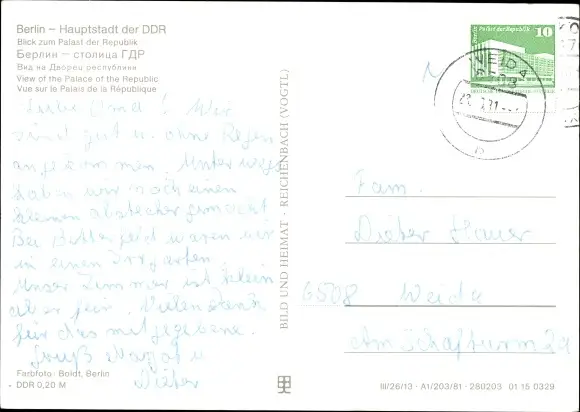 Berlin – Hauptstadt der DDR
Blick zum Palast der Republik
Берлин – столица ГДР
Вид на Дворец республики
View of the Palace of the Republic
Vue sur le Palais de la République
Liebe Oma! Wir
sind gut u. ohne Regen
angekommen. Unterwegs
haben wir noch einen
kleinen abstecher gemacht
Bei Bitterfeld waren wir
in einen Irrgarten.
Unser Zimmer ist klein
aber fein. Vielen Dank
für das mitgegebene.
Gruß Margot u
Dieter
Farbfoto: Boldt, Berlin
DDR 0,20 M
BILD UND HEIMAT · REICHENBACH (VOGTL)
Berlin Palast der Republik 10
WEIDA
6508
b
Fam.
Dieter Hauer
6508 Weida
Am Schafturm 2a
III/26/13 · A1/203/81 · 280203 01 15 0329